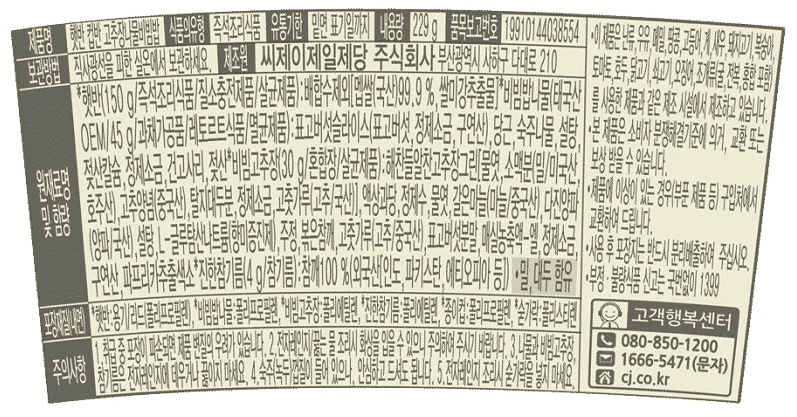 제품명 햇반 컵반 고추장나물비빔밥 식품의유형 즉석조리식품 유통기한 밑면 표기일까지 내용량 229 g 품목보고번호 19910144038554
보관방법 직사광선을 피한 실온에서 보관하세요. 제조원 씨제이제일제당 주식회사 부산광역시 사하구 다대로 210
원재료명 및 함량
*햇반(150 g/즉석조리식품/질소충전제품/살균제품): 배합수제외[멥쌀(국산)99.9 %, 쌀미강추출물] *비빔밥나물(태국산
OEM/45 g/과채가공품/레토르트식품/멸균제품): 표고버섯슬라이스(표고버섯, 정제소금, 구연산), 당근, 숙주나물, 설탕,
젖산칼슘, 정제소금, 건고사리, 젖산 *비빔고추장(30 g/혼합장/살균제품): 해찬들알찬고추장그린[물엿, 소맥분(밀/미국산,
호주산), 고추양념(중국산), 탈지대두분, 정제소금, 고춧가루(고추/국산)], 액상과당, 정제수, 물엿, 갈은마늘(마늘/중국산), 다진양파
(양파/국산), 설탕, L-글루탐산나트륨(향미증진제), 주정, 볶음참깨, 고춧가루(고추/중국산), 표고버섯분말, 매실농축액-엔, 정제소금,
구연산, 파프리카추출색소 *진한참기름(4 g/참기름): 참깨100 %(외국산(인도, 파키스탄, 에티오피아 등)) •밀, 대두 함유
포장재질(내면) *햇반:용기/리드(폴리프로필렌), *비빔밥나물:폴리프로필렌, *비빔고추장:폴리에틸렌, *진한참기름:폴리에틸렌, *종이컵:폴리프로필렌, *숟가락:폴리스티렌
주의사항
1. 취급 중 포장이 파손되면 제품 변질이 우려가 있습니다. 2. 전자레인지/끓는 물 조리시 화상을 입을 수 있으니 주의하여 주시기 바랍니다. 3. 나물과 비빔고추장,
참기름은 전자레인지에 데우거나 끓이지 마세요. 4. 숙주(녹두)껍질이 들어 있으나, 안심하고 드셔도 됩니다. 5. 전자레인지 조리시 숟가락을 넣지 마세요.
•이 제품은 난류, 우유, 메밀, 땅콩, 고등어, 게, 새우, 돼지고기, 복숭아,
토마토, 호두, 닭고기, 쇠고기, 오징어, 조개류(굴, 전복, 홍합 포함)
를 사용한 제품과 같은 제조 시설에서 제조하고 있습니다.
•본 제품은 소비자 분쟁해결기준에 의거, 교환 또는
보상 받을 수 있습니다.
•제품에 이상이 있는 경우(부푼 제품 등) 구입처에서
교환하여 드립니다.
•사용 후 포장지는 반드시 분리배출하여 주십시오.
•부정·불량식품 신고는 국번없이 1399
고객행복센터
080-850-1200
1666-5471(문자)
cj.co.kr